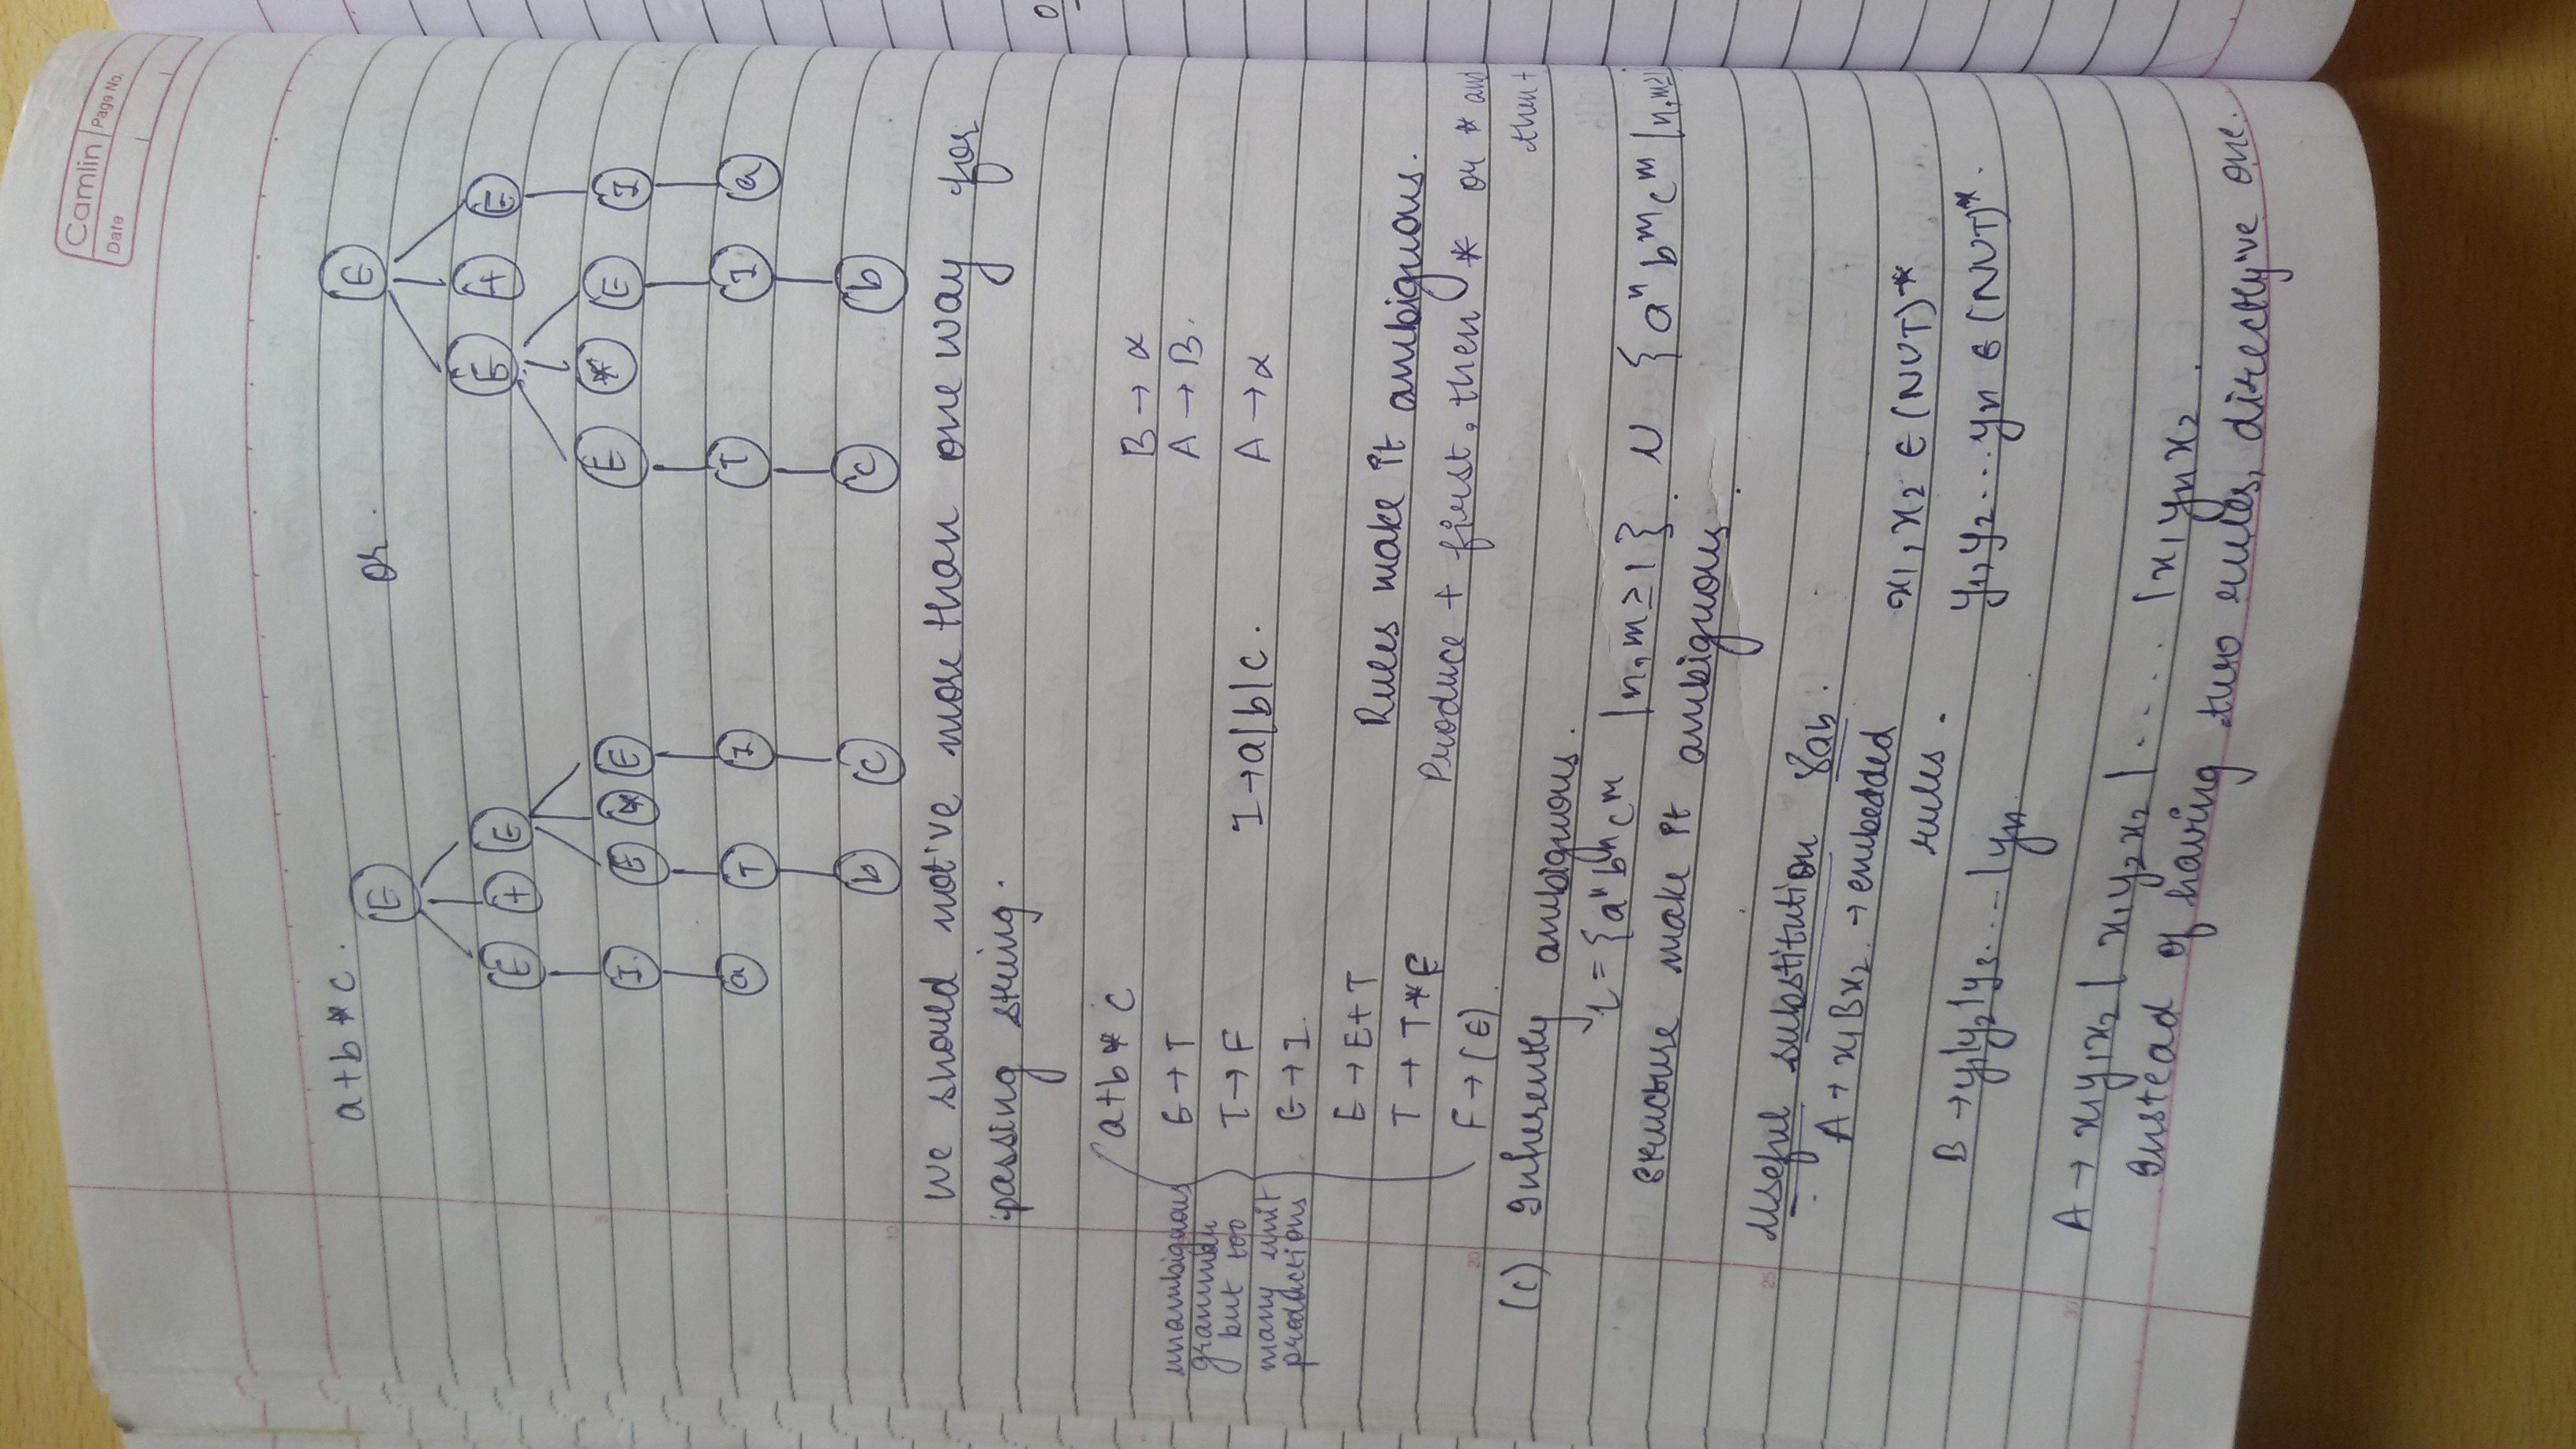 Camlin Page No.
Date
a+b*c.
or.
E E
E + E E + E
I. E * E E * E I
a T I T I a
b c c b
5
10
we should not've more than one way for
passing string.
a+b * c
B → α
unambiguous
grammar
but too
many unit
productions
E → T
A → B.
T → F
I → a|b|c.
A → α
E → I.
E → E+T
Rules make it ambiguous.
T → T*F
Produce + first, then * or * and
then +
20
F → (E).
(c) Inherently ambiguous.
L = {aⁿbⁿcᵐ |n,m≥1}. U {aⁿbᵐcᵐ |n,m≥1}
structure make it ambiguous.
25
Useful substitution
A → x₁Bx₂. → embedded
rules.
x₁, x₂ ∈ (NUT)*
B → y₁|y₂|y₃....|yn
y₁, y₂...yn ∈ (NUT)*.
30
A → x₁y₁x₂ | x₁y₂x₂ |.... |x₁ynx₂.
Instead of having two rules, directly've one.